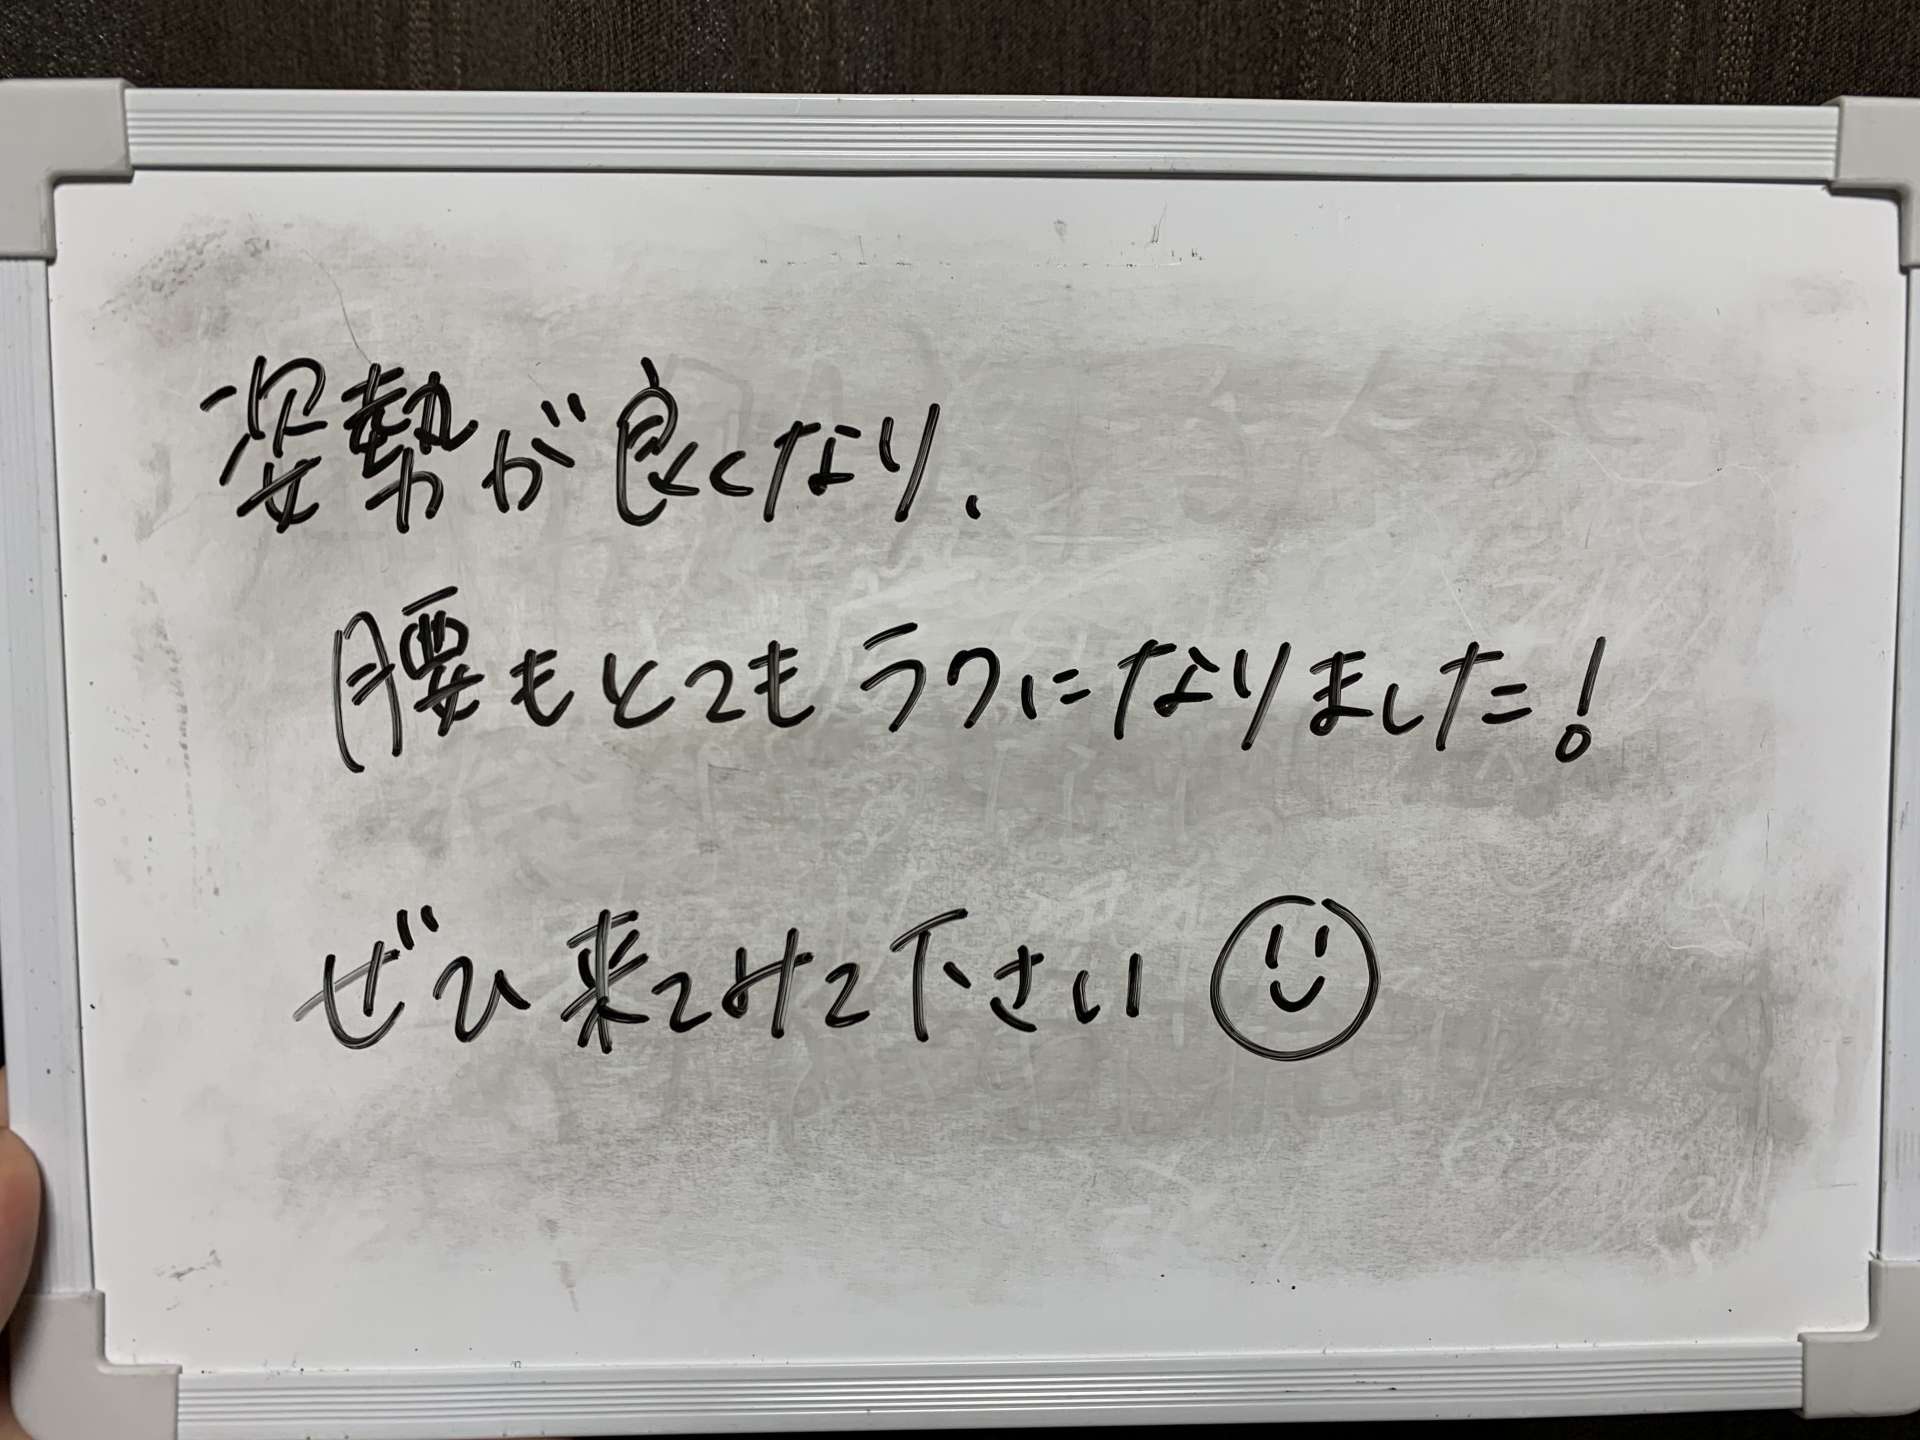 姿勢が良くなり、
腰もとてもラクになりました!
ぜひ来てみて下さい